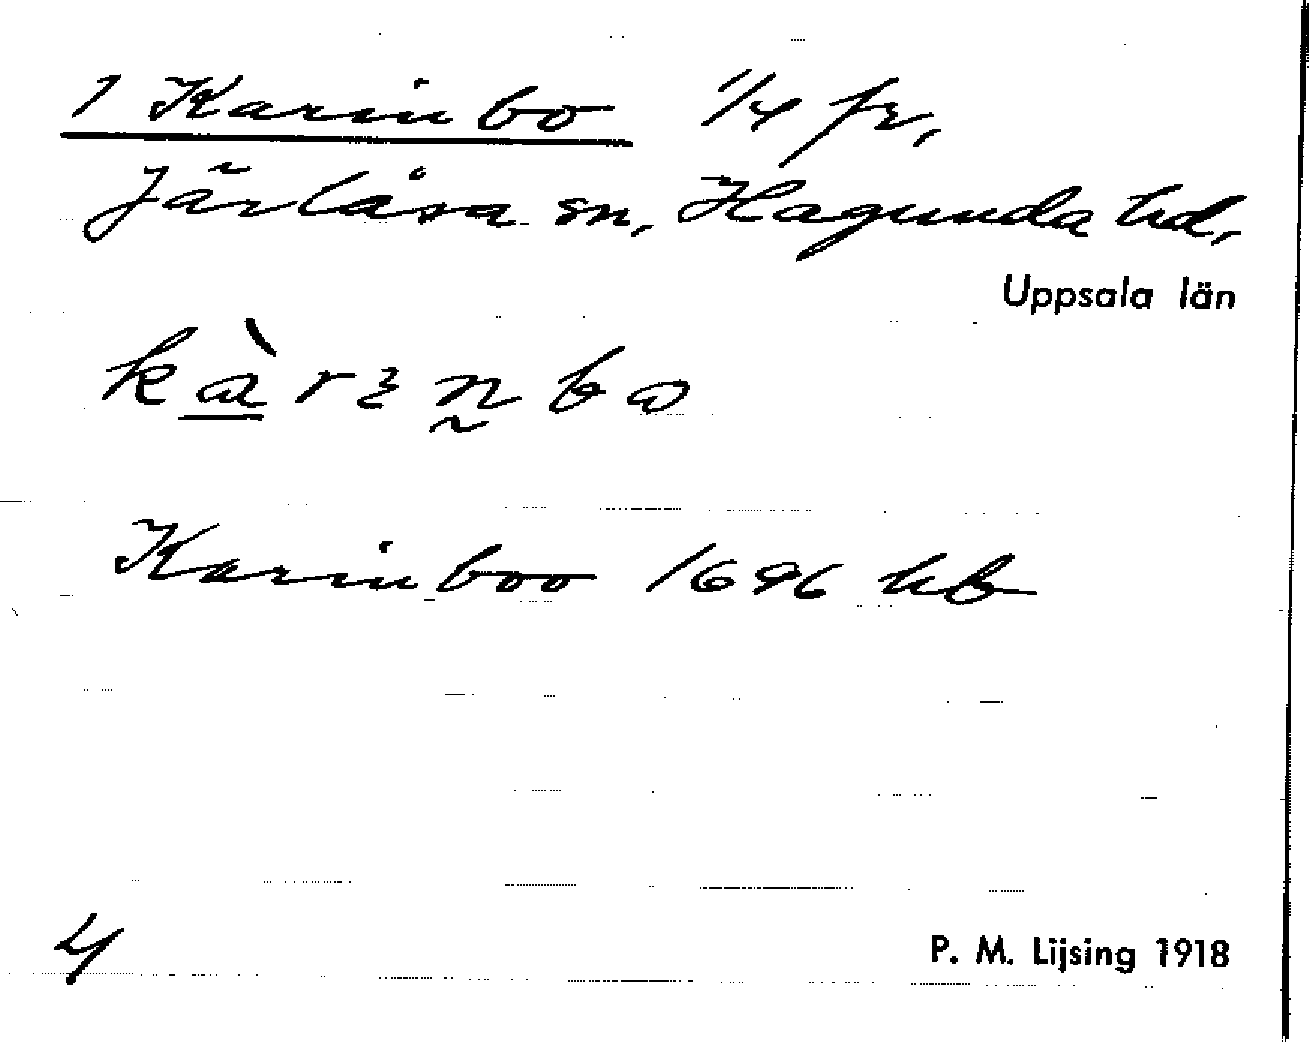 1 Karinbo 1/4 fr,
Järlåsa sn, Hagunda hd,
Uppsala län
kàrɛn̰bɷ
Karinboo 1696 hb
4
P. M. Lijsing 1918